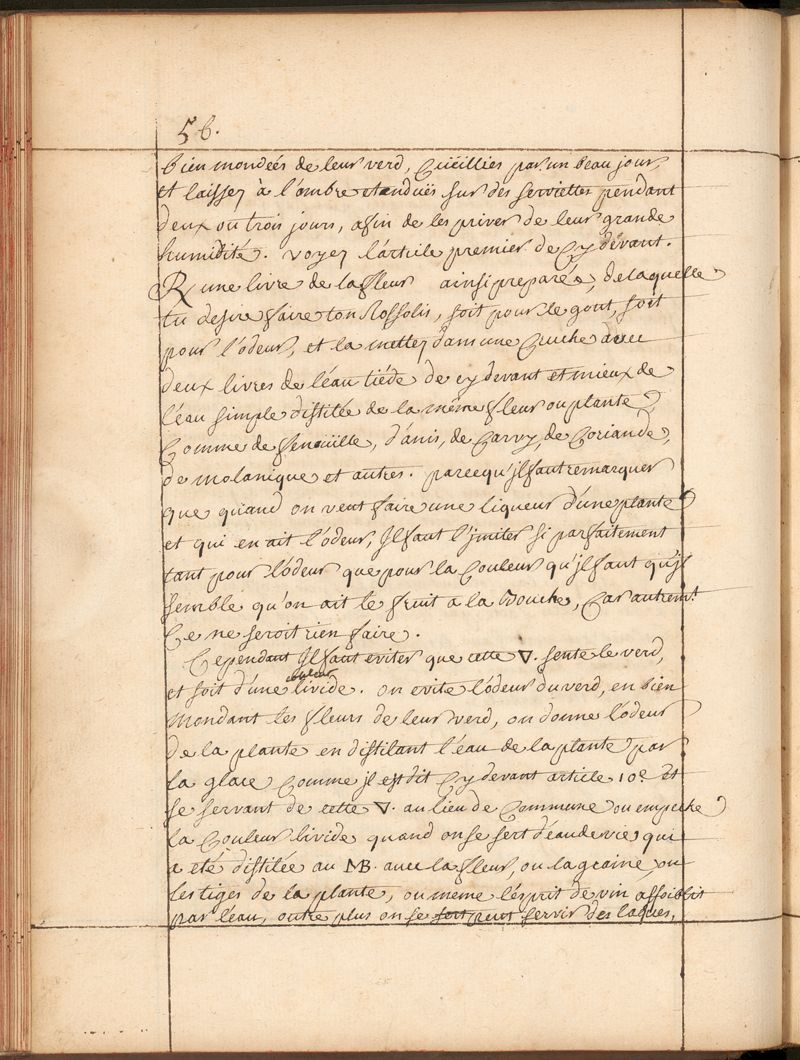 56.
bien mondeés de leur verd, Cüeillies par un beau jour,
et laissez à l'ombre etenduës sur des serviettes pendant
deux ou trois jours, afin de les priver de leur grande
humidité. voyez l'article premier de Cy devant.
℞ une livre de la fleur ainsi preparée, de laquelle
tu desire faire ton Rossolis, soit pour le gout, soit
pour l'odeur, et la mettez dans une Cruche avec
deux livres de l'eau tiéde de cy devant et mieux de
l'eau simple distilée de la même fleur ou plante
Comme de fenoüille, d'anis, de Carvy, de Coriande,
de molanique et autres. parcequ'jl faut remarquer
que quand on veut faire une liqueur d'une plante
et qui en ait l'odeur, Jl faut l'jmiter si parfaitement
tant pour l'odeur que pour la Couleur qu'jl faut qu'jl
semble qu'on ait le fruit a la Bouche, Car autremt.
Ce ne seroit rien faire.
Cependant Jl faut eviter que cette 🜄. sente le verd,
et soit d'une couleur livide. on evite l'odeur du verd, en bien
Mondant les fleurs de leur verd, on donne l'odeur
de la plante en distilant l'eau de la plante par
la glace Comme jl est dit Cy devant article 10e. et
se servant de cette 🜄. au lieu de Commune on empeche
la Couleur livide quand on se sert d'eau de vie qui
a eté distilée au MB. avec la fleur, ou la graine ou
les tiges de la plante, ou meme l'esprit de vin affoiblit
par l'eau, outre plus on se sert peut servir des laques,